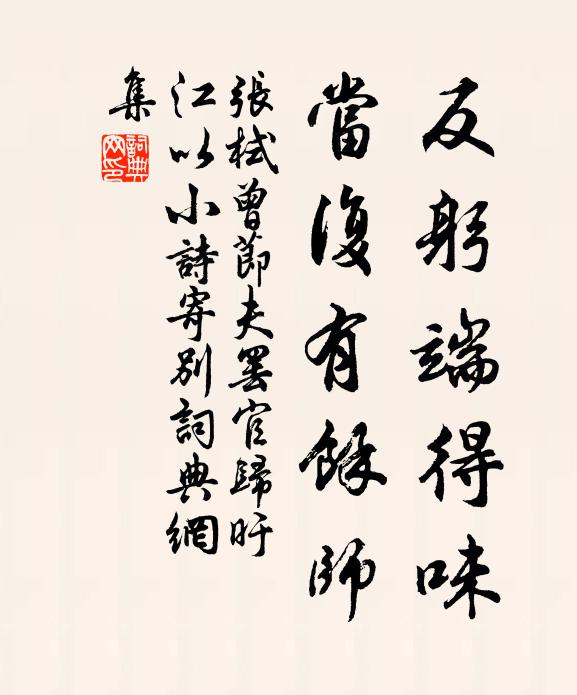 反躬端得味
當復有餘師
張栻曾節夫罷官歸盱
江以小詩寄別詞典網
集
詞典
网印